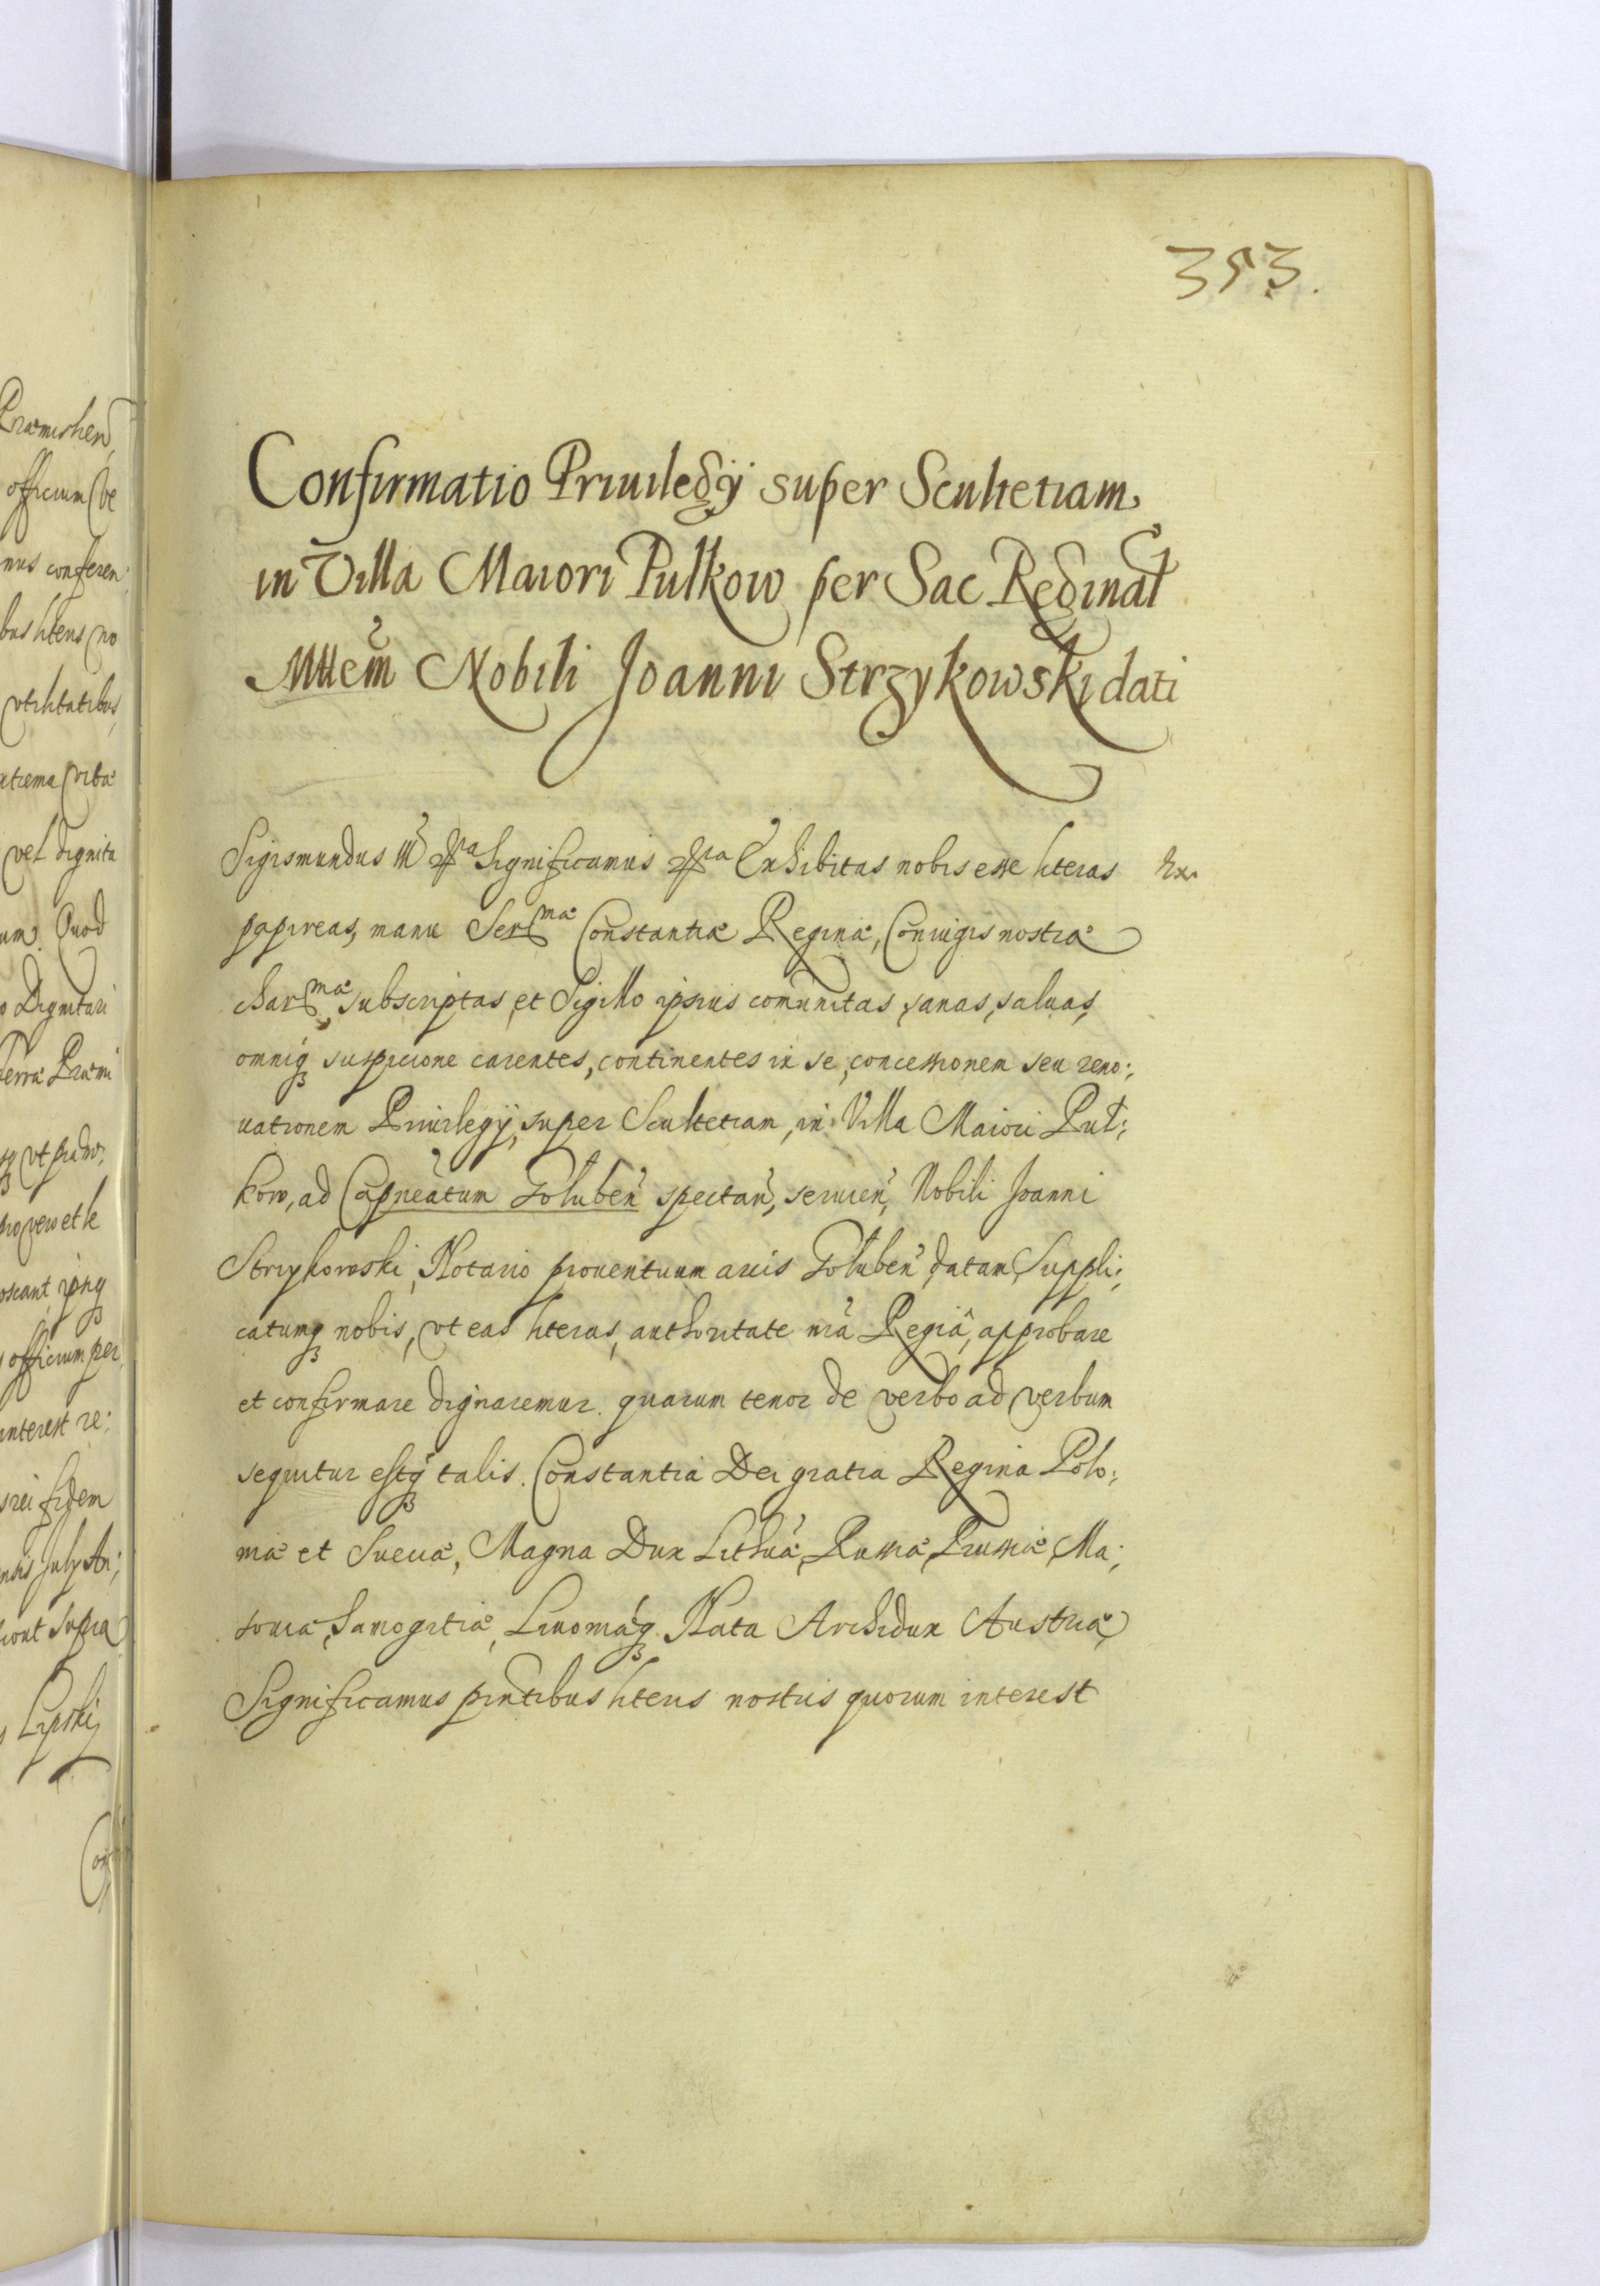 353.
Confirmatio Priuilegÿ super Scultetiam
in Villa Maiori Pulkow per Sac Reginal
Mttem Nobili Joanni Strzykowski dati
Sigismundus III Significamus Exhibitas nobis esse literas
papireas, manu Ser^mæ Constantiæ Reginæ, Coniugis nostræ
char^mæ subscriptas, et Sigillo ipsius comunitas, sanas, saluas,
omniq suspicione carentes, continentes in se, concessionem seu reno:
uationem Priuilegÿ, super Scultetiam, in Villa Maiori Pul:
kow, ad Capneatum Goluben spectan, seruien, Nobili Joanni
Strzykowski, Notario prouentuum arcis Goluben datam, Suppli:
catumq nobis, vt eas literas, authoritate nra Regiâ, approbare
et confirmare dignaremur. quarum tenor de verbo ad verbum
sequitur estq talis. Constantia Dei gratia Regina Polo:
niæ et Sueciæ, Magna Dux Lithuæ, Russiæ, Prussiæ, Ma:
souiæ, Samogitiæ, Liuoniæq Nata Archidux Austriæ,
Significamus pntibus literis nostris quorum interest
Præmislien
officium
nus conferen:
bus literis no
vtilitatibus,
vitæ
vel dignita
Quod
Dignitari
terræ Præmi
vero et
officium per
interest re:
rei fidem
July An:
supra
Lipskj